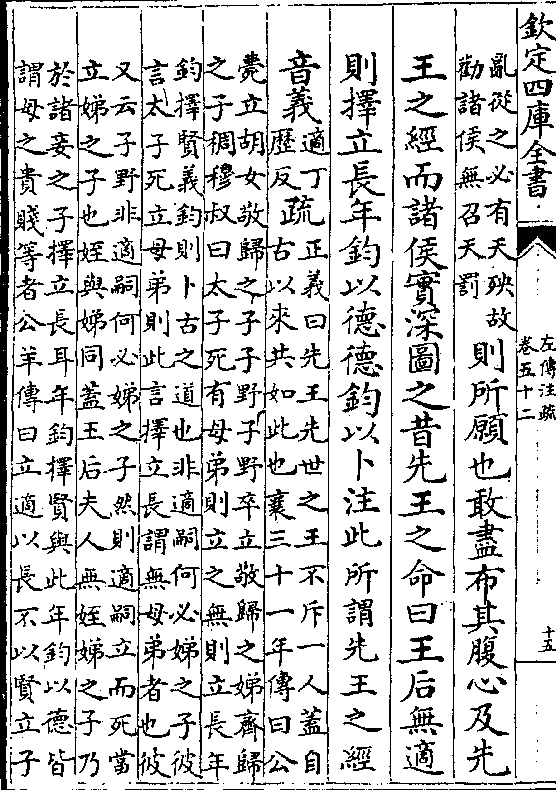 欽定四庫全書
左傳注疏
卷五十二
十五
亂從之必有天殃故
勸諸侯無召天罰
則所願也敢盡布其腹心及先
王之經而諸侯實深圖之昔先王之命曰王后無適
則擇立長年鈞以德德鈞以卜注此所謂先王之經
音義
適丁
歴反
疏
正義曰先王先世之王不斥一人蓋自
古以來共如此也襄三十一年傳曰公
薨立胡女敬歸之子子野子野卒立敬歸之娣齊歸
之子稠穆叔曰太子死有母弟則立之無則立長年
鈞擇賢義鈞則卜古之道也非適嗣何必娣之子彼
言太子死立母弟則此言擇立長謂無母弟者也彼
又云子野非適嗣何必娣之子然則適嗣立而死當
立娣之子也姪與娣同蓋王后夫人無姪娣之子乃
於諸妾之子擇立長耳年鈞擇賢與此年鈞以德皆
謂母之貴賤等者公羊傳曰立適以長不以賢立子